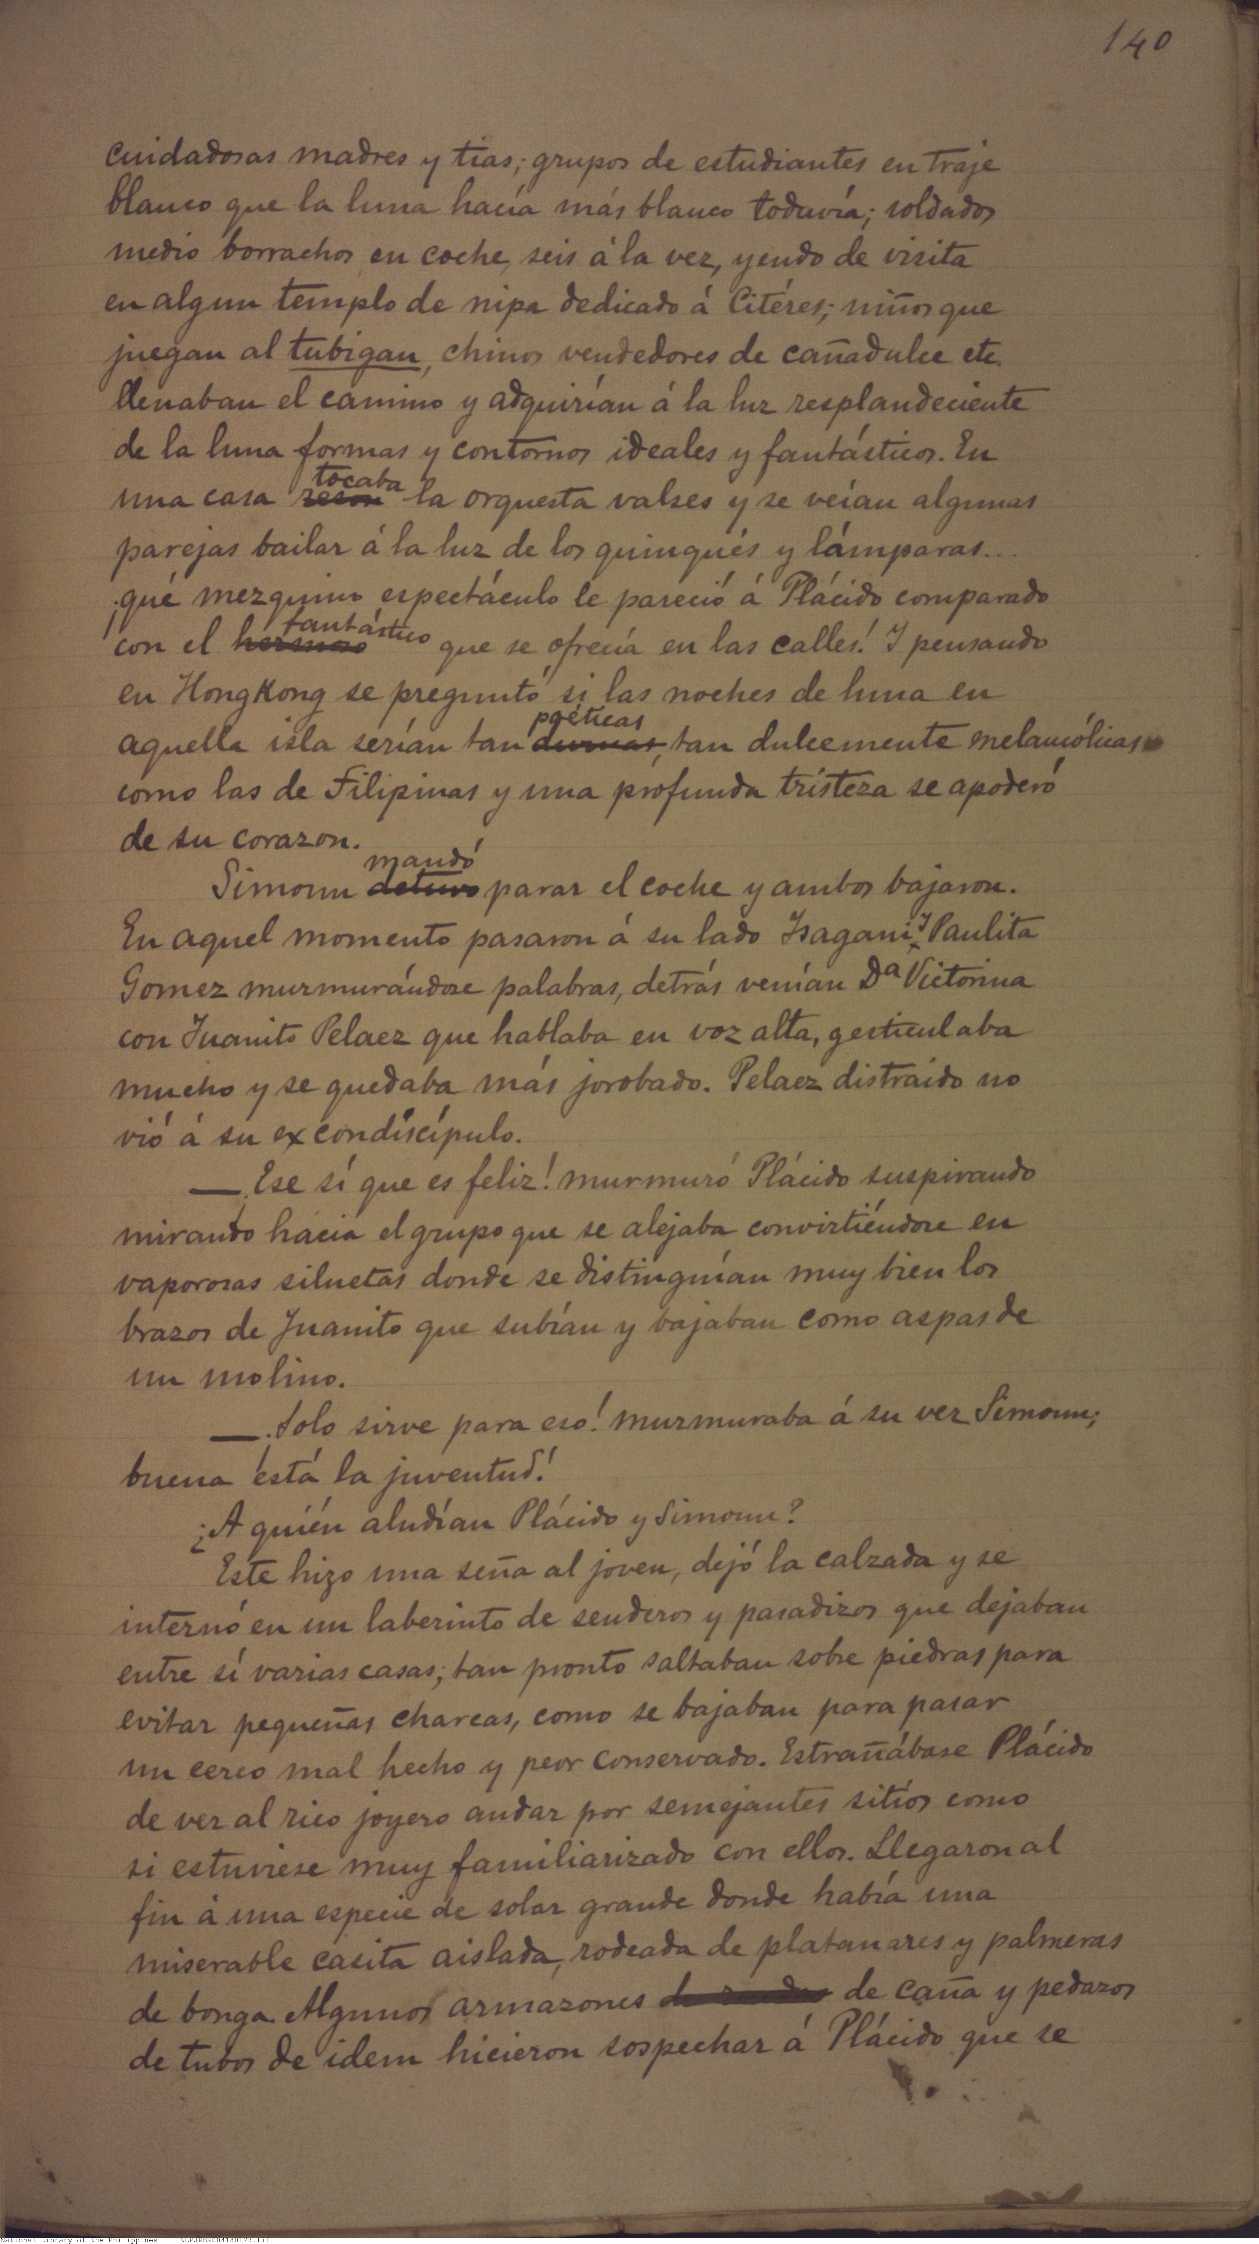 140
cuidadosas madres y tias; grupos de estudiantes en traje
blanco que la luna hacía más blanco todavía; soldados
medio borrachos en coche, seis á la vez, yendo de visita
en algun templo de nipa dedicado á Citéres; niños que
juegan al tubigan, chinos vendedores de cañadulce etc.
llenaban el camino y adquirían á la luz resplandeciente
de la luna formas y contornos ideales y fantásticos. En
tocaba
una casa reson la orquesta valses y se veían algunas
parejas bailar á la luz de los quinqués y lámparas...
¡qué mezquino espectáculo le pareció á Plácido comparado
fantástico
con el hermoso que se ofrecía en las calles! Y pensando
en HongKong se preguntó si las noches de luna en
poéticas
aquella isla serían tan , tan dulcemente melancólicas
como las de Filipinas y una profunda tristeza se apoderó
de su corazon.
mandó
Simoun detuvo parar el coche y ambos bajaron.
En aquel momento pasaron á su lado Isagani y Paulita
Gomez murmurándose palabras, detrás venían Dª Victorina
con Juanito Pelaez que hablaba en voz alta, gesticulaba
mucho y se quedaba más jorobado. Pelaez distraido no
vió á su excondiscípulo.
— ¡Ese sí que es feliz! murmuró Plácido suspirando
mirando hácia el grupo que se alejaba convirtiéndose en
vaporosas siluetas donde se distinguían muy bien los
brazos de Juanito que subían y bajaban como aspas de
un molino.
— ¡Solo sirve para eso! murmuraba á su vez Simoun;
buena está la juventud!
¿A quién aludían Plácido y Simoun?
Este hizo una seña al joven, dejó la calzada y se
internó en un laberinto de senderos y pasadizos que dejaban
entre sí varias casas; tan pronto saltaban sobre piedras para
evitar pequeñas charcas, como se bajaban para pasar
un cerco mal hecho y peor conservado. Estrañábase Plácido
de ver al rico joyero andar por semejantes sitios como
si estuviese muy familiarizado con ellos. Llegaron al
fin á una especie de solar grande donde había una
miserable casita aislada, rodeada de platanares y palmeras
de bonga. Algunos armazones de caña y pedazos
de tubos de idem hicieron sospechar á Plácido que se